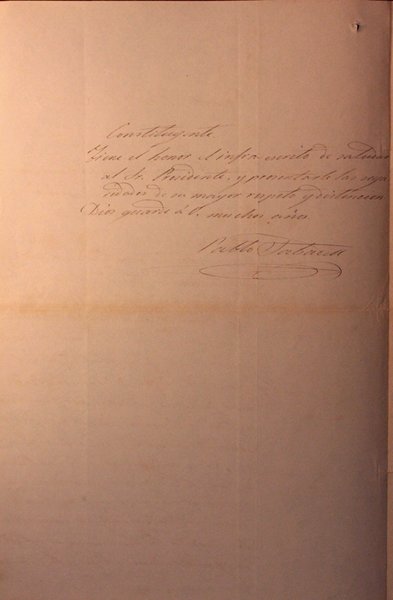 Constituyente
Tiene el honor el infra escrito de
al Sr. Presidente, y presentarle las segu
ridades de su mayor respeto y distincion
Dios guarde á V. muchos años
Pablo